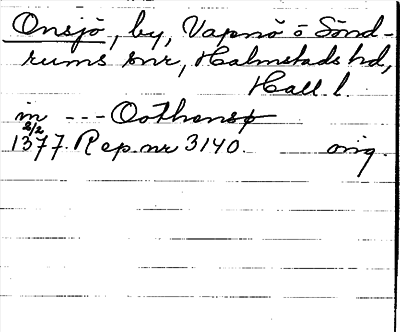 Onsjö, by, Vapnö o Sönd-
rums snr, Halmstads hd,
Hall l.
in --- Oothensø
2/2
1377. Rep. nr 3140. orig.